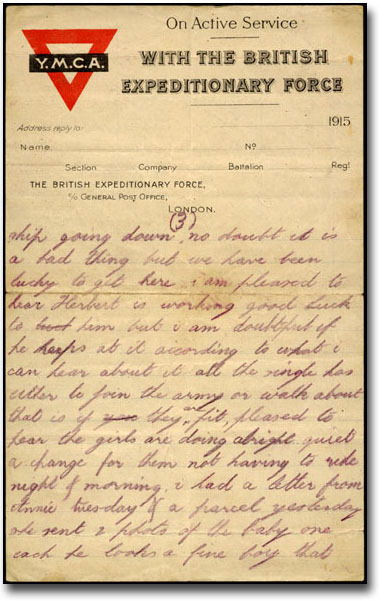 On Active Service
WITH THE BRITISH
EXPEDITIONARY FORCE
Y.M.C.A.
1915
Address reply to:
Name, Nº
Section Company Battalion Regt
THE BRITISH EXPEDITIONARY FORCE,
c/o GENERAL POST OFFICE,
LONDON.
(3)
ship going down, no doubt it is
a bad thing but we have been
lucky to get here, i am pleased to
hear Herbert is working good luck
to him but i am doubtful if
he keeps at it according to what i
can hear about it all the single has
either to join the army or walk about
that is if they are fit, pleased to
hear the girls are doing alright quiet
a change for them not having to ride
night & morning, i had a letter from
Annie tuesday & a parcel yesterday
she sent 2 photos of the baby one
each he looks a fine boy that